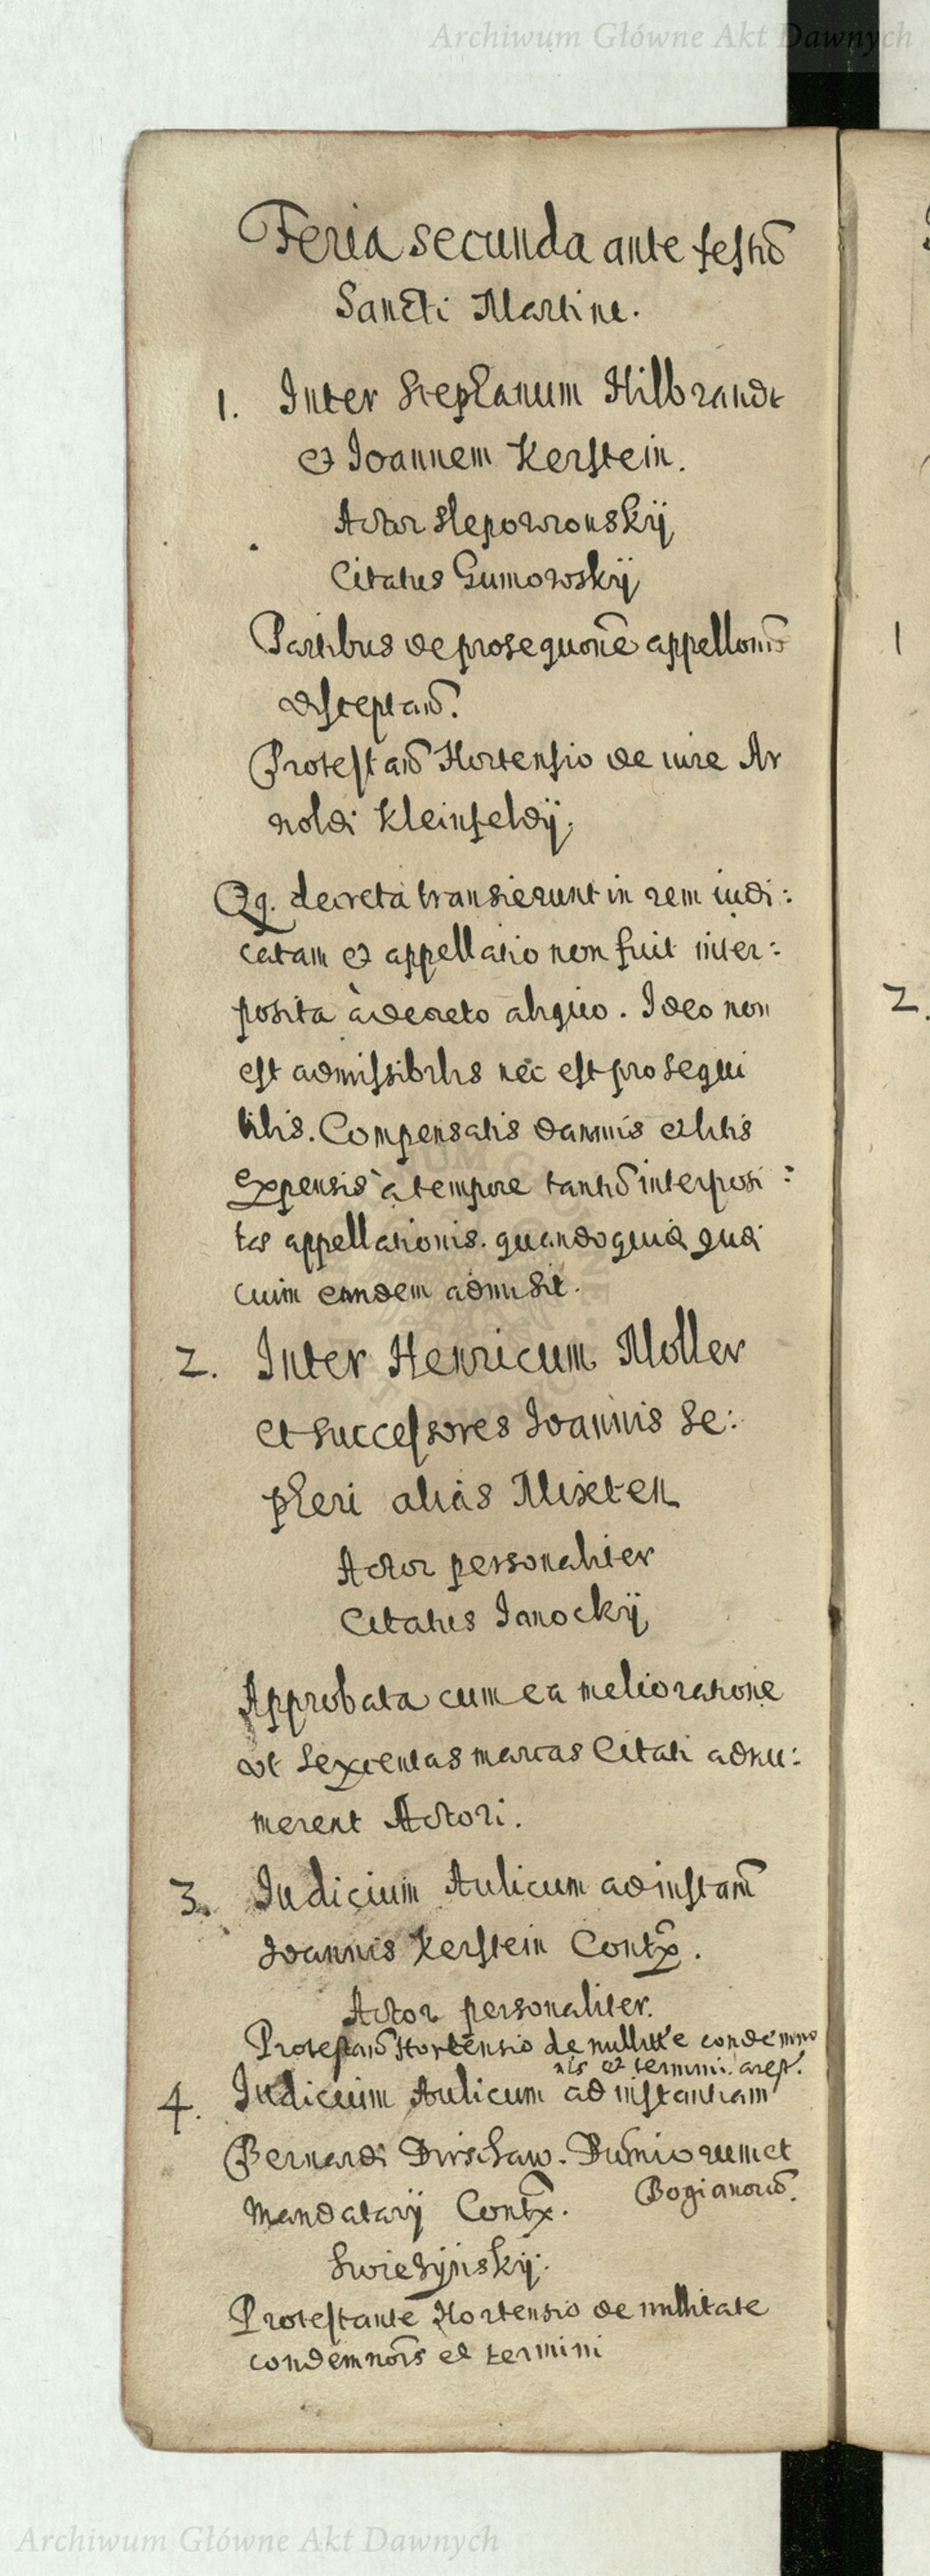 Archiwum Główne Akt Dawnych
Feria secunda ante festũ
Sancti Martini.
1. Inter Stephanum Hilbrandt
et Ioannem Kerstein.
Actor Slepowronskÿ
Citatus Gumowskÿ
Partibus de prosequõne appellõnis
disceptañ.
Protestañ Hortensio de iure Ar
noldi Kleinfeldÿ.
Qq. decreta transierunt in rem iudi:
catam et appellatio non fuit inter:
posita à decreto aliquo. Ideo non
est admissibilis nec est prosequi
bilis. Compensatis damnis et litis
expensis à tempore tantũ interposi:
tas appellationis. quandoquid Iudi
cium eandem admisit.
2. Inter Henricum Moller
et successores Ioannis Se:
pheri alias Mixten
Actor personaliter
Citatus Ianockÿ
Approbata cum ea melioratione
vt sexcentas marcas Citati adnu:
merent Actori.
3. Iudicium Aulicum ad instam̃
Ioannis Kerstein Contx̃.
Actor personaliter.
Protestañ Hortensio de nullitte condemno
nis et termini arest.
4. Iudicium Aulicum ad instantiam
Bernardi Dirschaw. et
Bogianorũ.
Mandatarÿ Contx̃.
Swiezÿnskÿ.
Protestante Hortensio de nullitate
condemnõis et termini
1
2.
Archiwum Główne Akt Dawnych